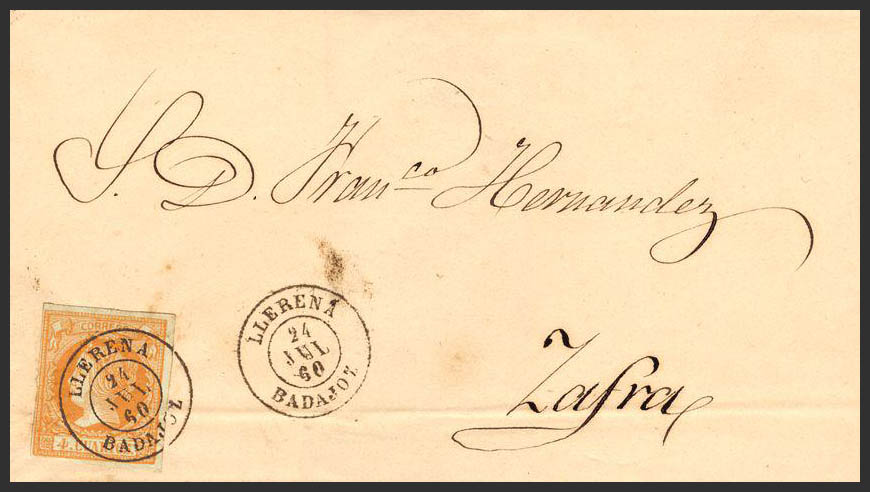 S. D. Franco Hernandez
Zafra
LLERENA
24
JUL
60
BADAJOZ
CORREOS
LLERENA
24
JUL
60
BADAJOZ
4 CUAR